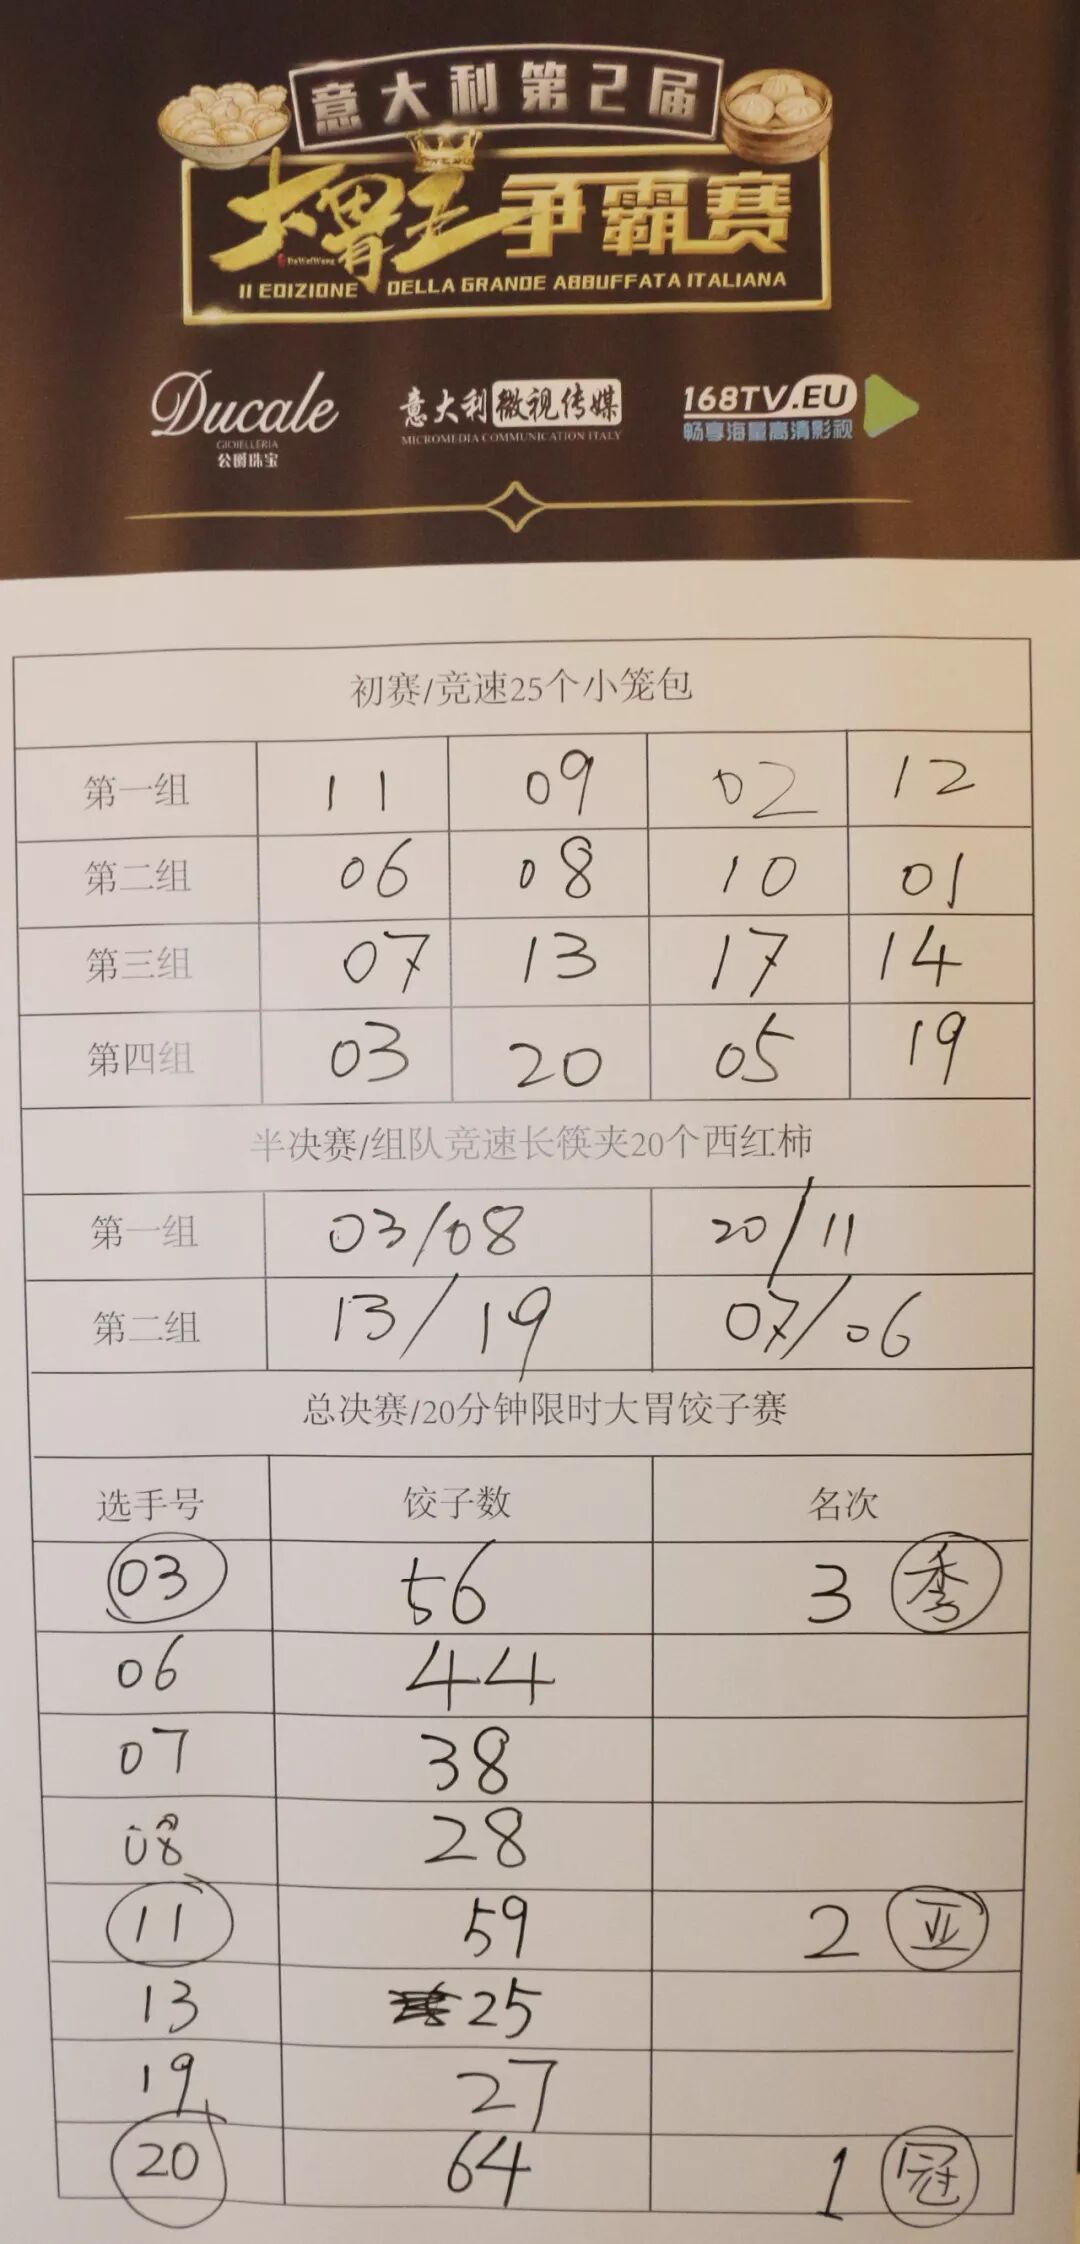 意大利第2届
大胃王争霸赛
DaWeiWang
II EDIZIONE DELLA GRANDE ABBUFFATA ITALIANA
Ducale
GIOIELLERIA
公爵珠宝
意大利微视传媒
MICROMEDIA COMMUNICATION ITALY
168TV.EU
畅享海量高清影视
初赛/竞速25个小笼包
第一组 11 09 02 12
第二组 06 08 10 01
第三组 07 13 17 14
第四组 03 20 05 19
半决赛/组队竞速长筷夹20个西红柿
第一组 03/08 20/11
第二组 13/19 07/06
总决赛/20分钟限时大胃饺子赛
选手号 饺子数 名次
03 56 3 季
06 44
07 38
08 28
11 59 2 亚
13 25
19 27
20 64 1 冠